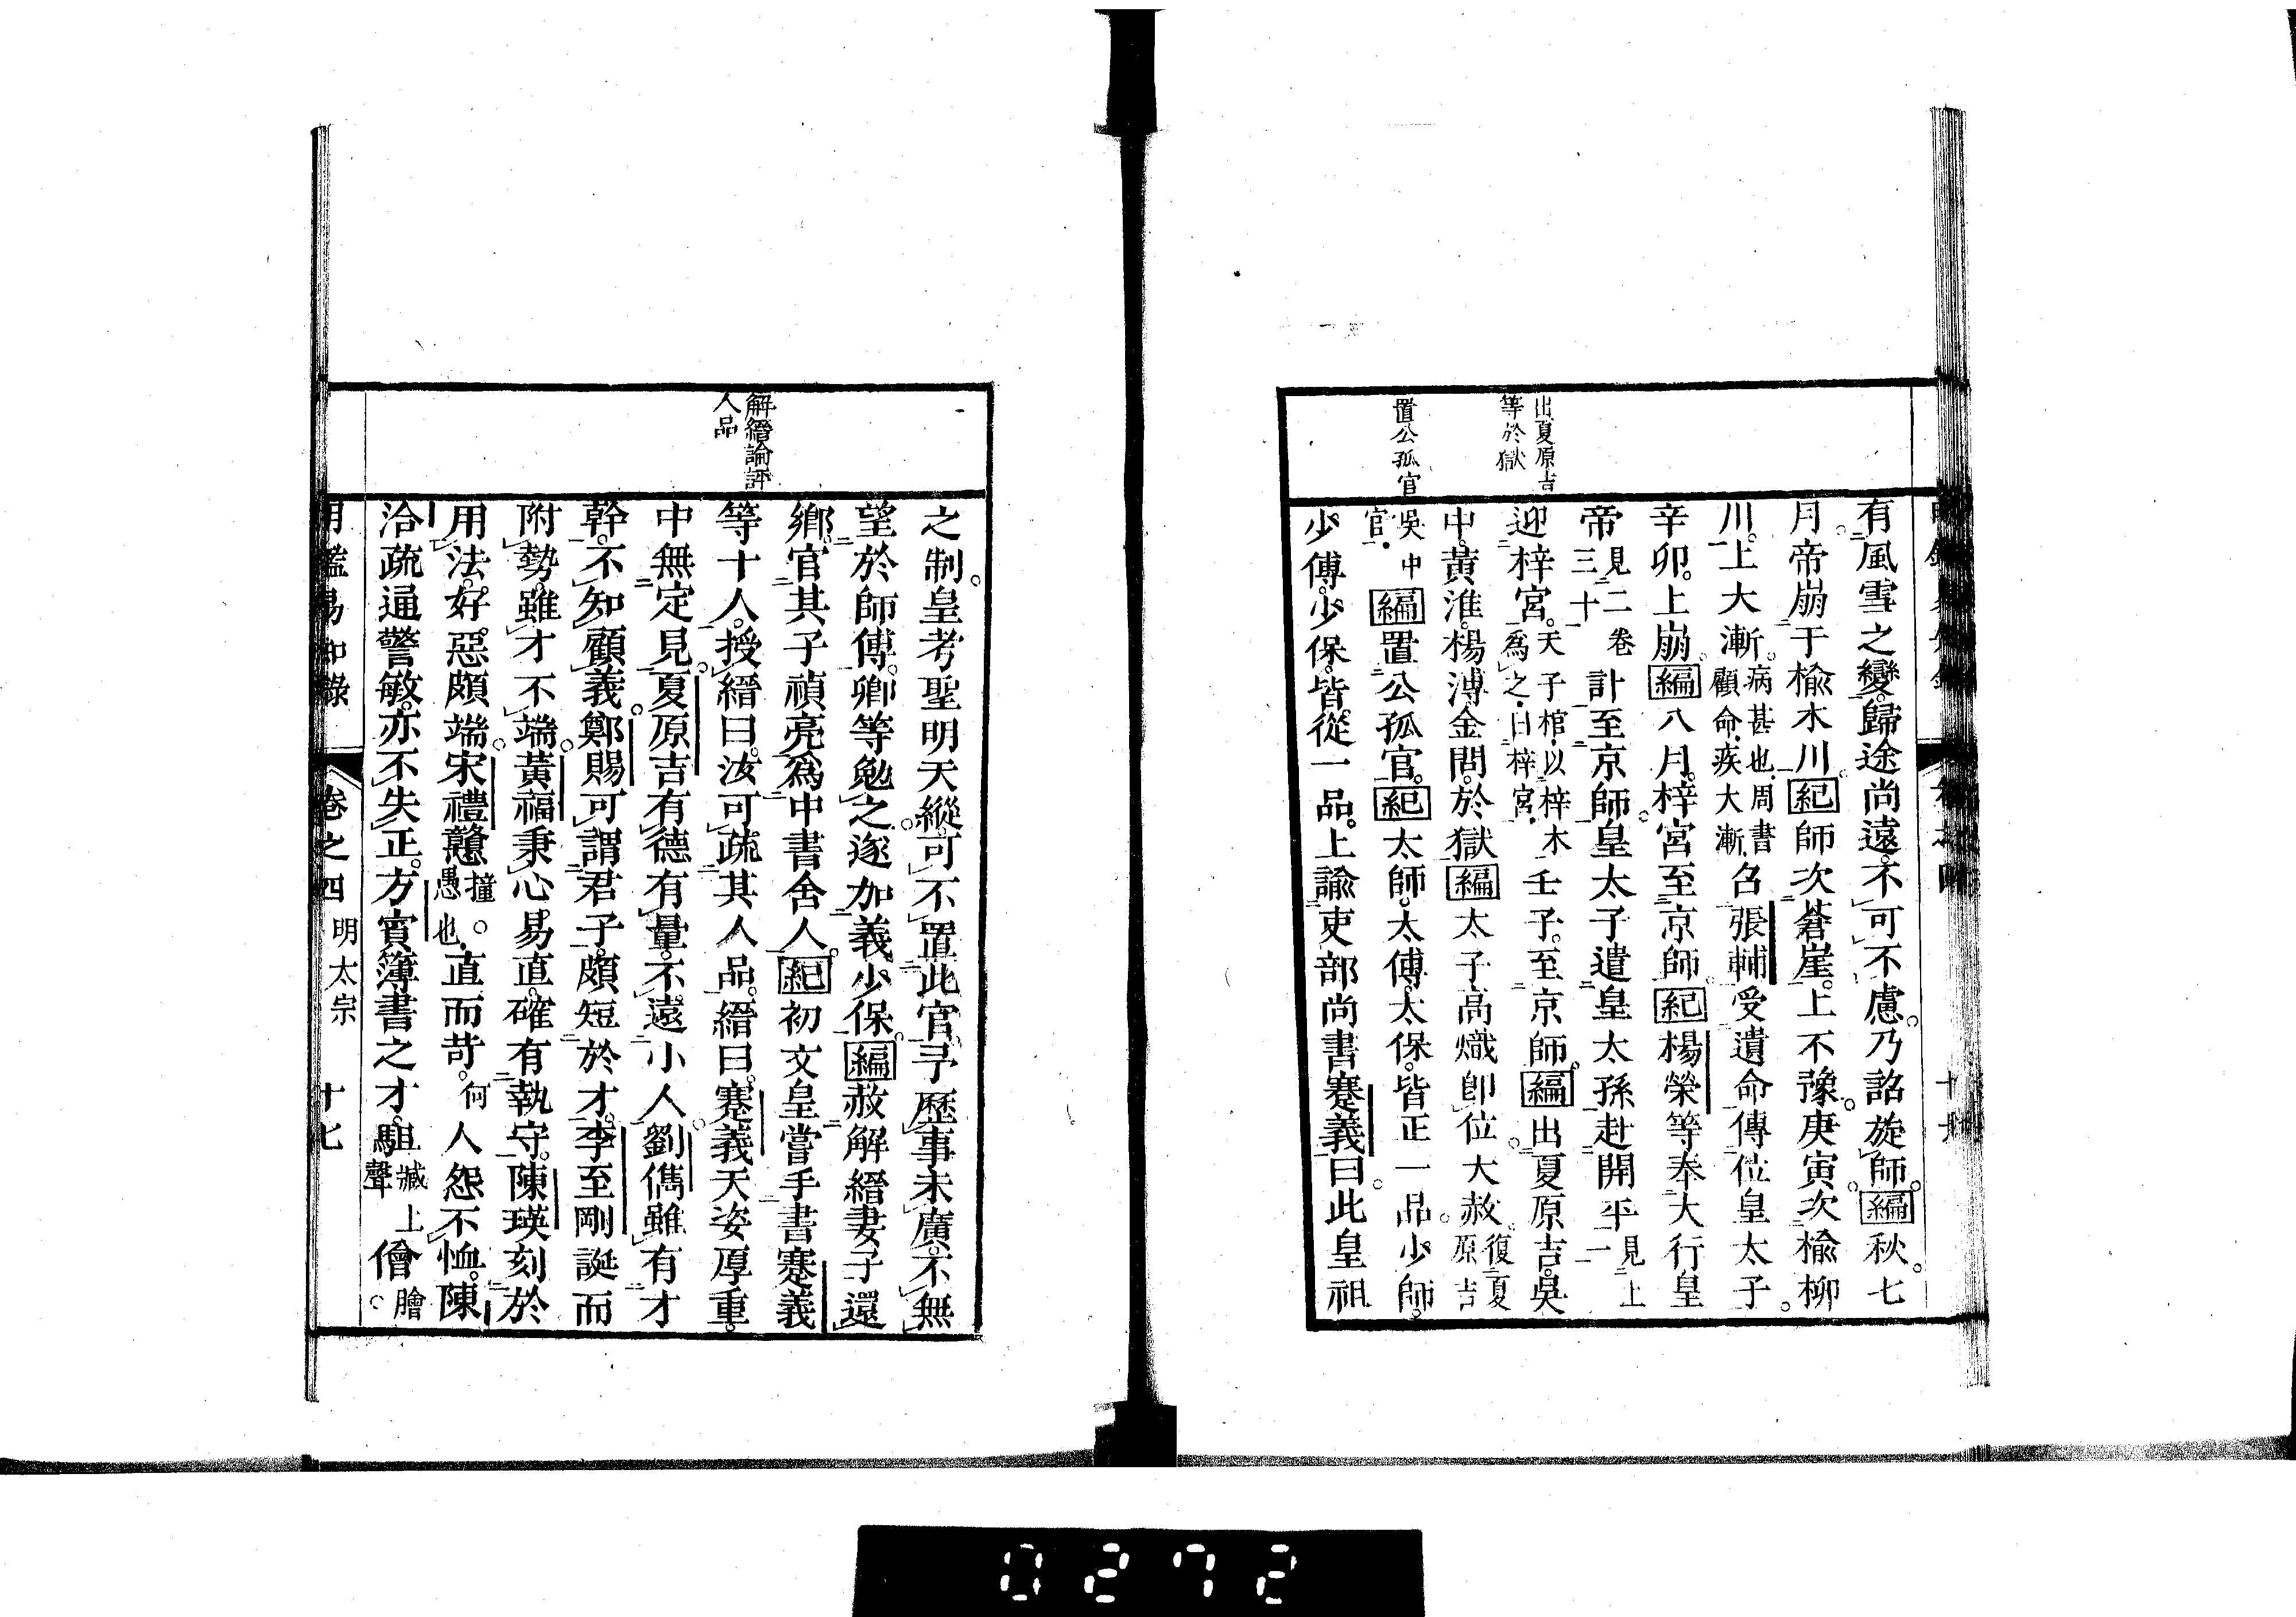 出夏原吉
等於獄
置公孤官
有風雪之變歸途尚遠不可不慮乃詔旋師編秋七
月帝崩于榆木川紀師次蒼崖上不豫庚寅次榆柳
川上大漸病甚也周書顧命疾大漸召張輔受遺命傳位皇太子
辛卯上崩編八月梓宮至京師紀楊榮等奉大行皇
帝見二卷三十計至京師皇太子遣皇太孫赴開平見上一
迎梓宮天子棺以梓木爲之曰梓宮壬子至京師編出夏原吉吳
中黃淮楊溥金問於獄編太子高熾卽位大赦復夏原吉
吳中官編置公孤官紀太師太傅太保皆正一品少師
少傅少保皆從一品上諭吏部尚書蹇義曰此皇祖
解縉論評
人品
之制皇考聖明天縱可不置此官予歷事未廣不無
望於師傅卿等勉之遂加義少保編赦解縉妻子還
鄉官其子禎亮爲中書舍人紀初文皇嘗手書蹇義
等十人授縉曰汝可疏其人品縉曰蹇義天姿厚重
中無定見夏原吉有德有量不遠小人劉儁雖有才
幹不知顧義鄭賜可謂君子頗短於才李至剛誕而
附勢雖才不端黃福秉心易直確有執守陳瑛刻於
用法好惡頗端宋禮戇撞愚也直而苛何人怨不恤陳
洽疏通警敏亦不失正方賓簿書之才駔臧上聲儈膾
明鑑易知錄 卷之四 明太宗 十七
0272